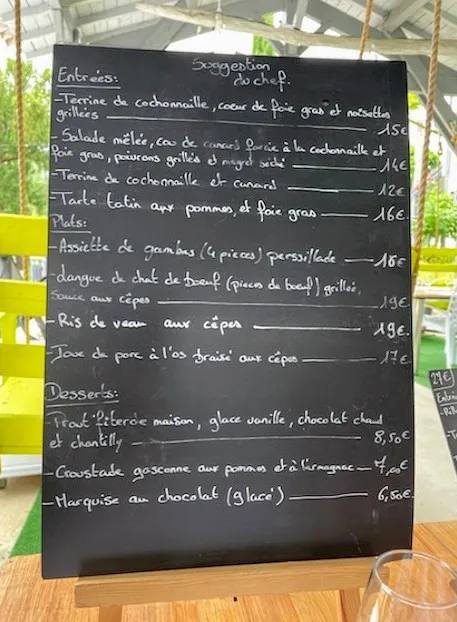 Suggestion
du chef:
Entrées:
-Terrine de cochonnaille, coeur de foie gras et noisettes
grillées 15€
-Salade mêlée, cou de canard farcie à la cochonnaille et
foie gras, poivrons grillés et magret séché 14€
-Terrine de cochonnaille et canard 12€
-Tarte tatin aux pommes, et foie gras 16€
Plats:
-Assiette de gambas (4 pieces) perssillade
-Langue de chat de boeuf (pieces de boeuf) grillée,
sauce aux cèpes 19€
-Ris de veau aux cèpes 19€
-Joue de porc à l'os braisé aux cèpes 17€
Desserts:
maison, glace vanille, chocolat chaud
et chantilly 8,50€
-Croustade gasconne aux pommes et à l'armagnac 7,00€
-Marquise au chocolat (glacé) 6,50€
27€
Entrée